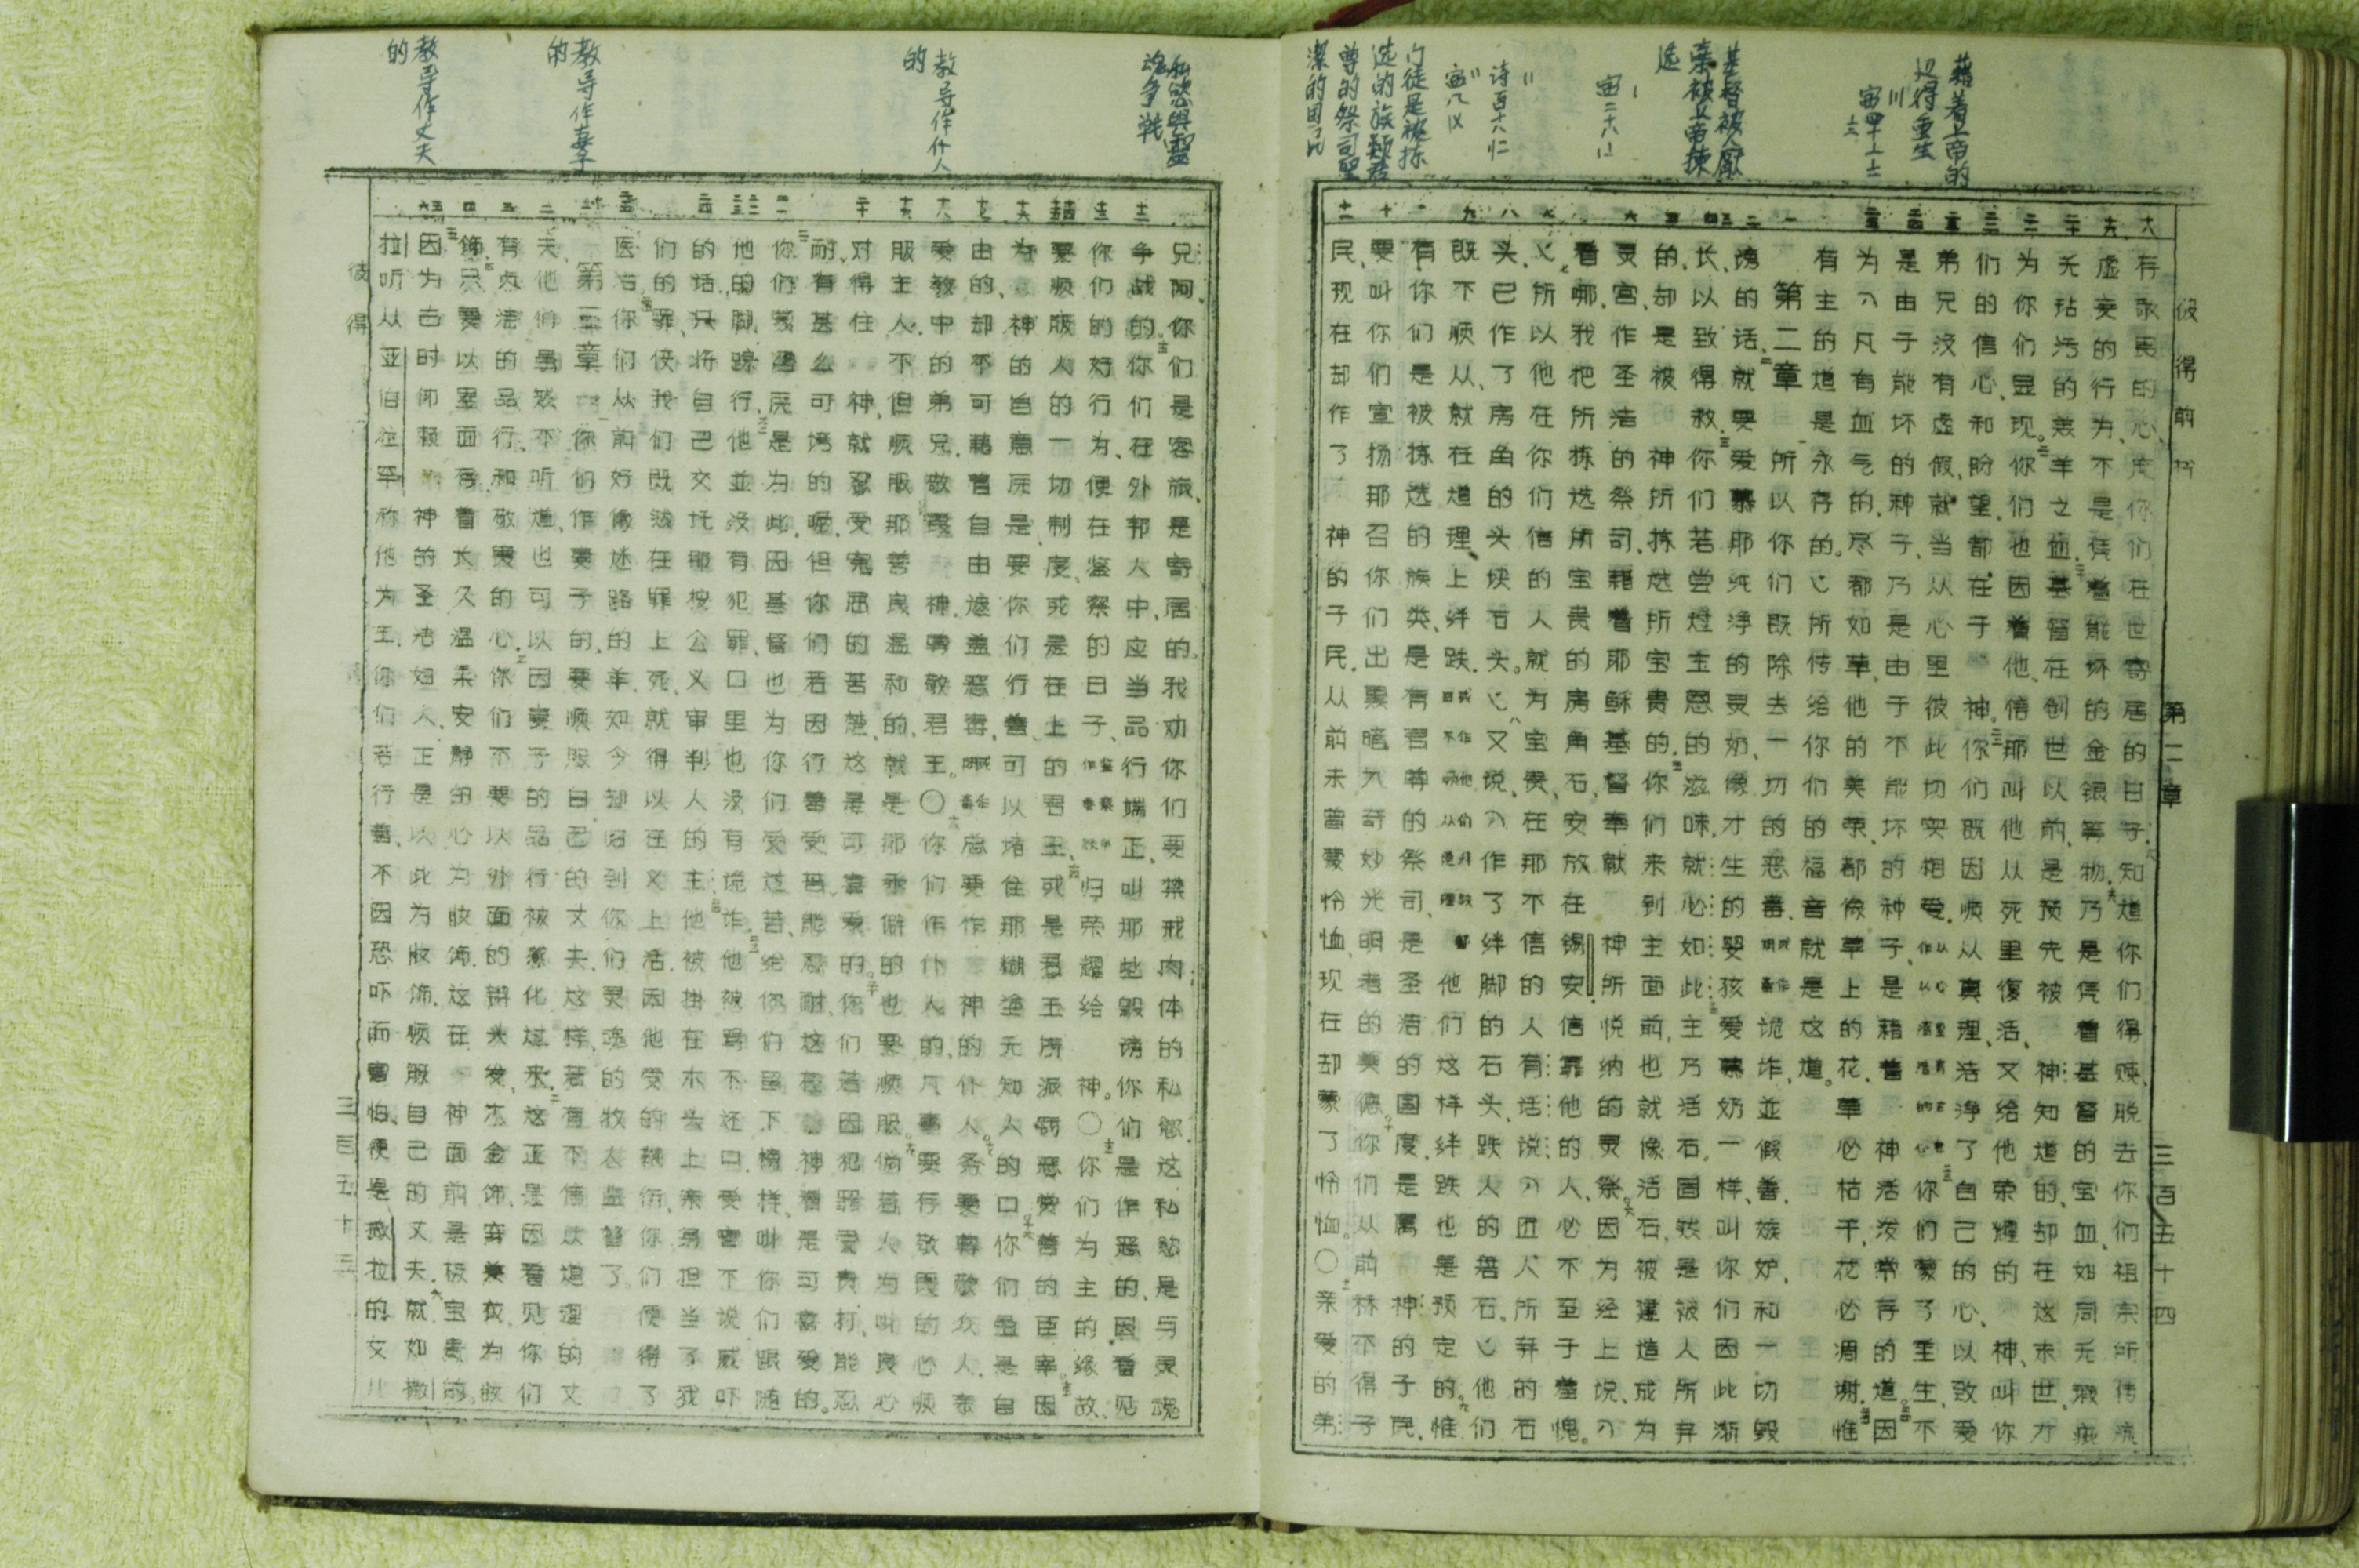 藉着上帝的
道得重生
基督被人厭
棄被上帝揀
选
门徒是被拣
选的族類君
尊的祭司聖
潔的国民
彼得前书
第二章
三百五十四
存敬畏的心、度你们在世寄居的日子、知道你们得赎、脱去你们祖宗所传流
虚妄的行为、不是凭着能坏的金银等物、乃是凭着基督的宝血、如同无瑕疵
无玷污的羔羊之血、基督在创世以前、是预先被 神知道的、却在这末世、才
为你们显现。你们也因着他、信那叫他从死里復活、又给他荣耀的 神、叫你
们的信心、和盼望、都在于 神。你们既因顺从真理、洁净了自己的心、以致爱
弟兄没有虚假、就当从心里彼此切实相爱、你们蒙了重生、不
是由于能坏的种子、乃是由于不能坏的种子、是藉着 神活泼常存的道。因
为凡有血气的、尽都如草、他的美荣、都像草上的花。草必枯干、花必凋谢、惟
有主的道是永存的。所传给你们的福音就是这道。
第二章 所以你们既除去一切的恶毒、诡诈、並假善、嫉妒、和一切毁
谤的话、就要爱慕那纯净的灵奶、像才生的婴孩爱慕奶一样、叫你们因此渐
长、以致得救、你们若尝过主恩的滋味、就必如此、主乃活石、固然是被人所弃
的、却是被 神所拣选所宝贵的、你们来到主面前、也就像活石、被建造成为
灵宫、作圣洁的祭司、藉着耶稣基督奉献 神所悦纳的灵祭。因为经上说、
看哪、我把所拣选所宝贵的房角石、安放在锡安信靠他的人、必不至于羞愧。
所以他在你们信的人就为宝贵、在那不信的人有话说匠人所弃的石
头、已作了房角的头块石头。又说作了绊脚的石头、跌人的磐石。他们
既不顺从、就在道理上绊跌、他们这样绊跌也是预定的。惟
有你们是被拣选的族类、是有君尊的祭司、是圣洁的国度、是属 神的子民、
要叫你们宣扬那召你们出黑暗入奇妙光明者的美德。你们从前林不得子
民、现在却作了 神的子民、从前未曾蒙怜恤、现在却蒙了怜恤。〇亲爱的弟
私慾與靈
魂争戰
教导作仆人
的
教导作妻子
的
教导作丈夫
的
兄阿、你们是客旅、是寄居的。我劝你们要禁戒肉体的私慾、这私慾是与灵魂
争战的、你们在外邦人中、应当品行端正、叫那些毁谤你们是作恶的、因看见
你们的好行为、便在鉴察的日子、归荣耀给 神。〇你们为主的缘故、
要顺服人的一切制度、或是在上的君王、或是君王所派罚恶赏善的臣宰、因
为 神的旨意原是要你们行善、可以堵住那糊塗无知人的口、你们虽是自
由的、却不可藉着自由遮盖恶毒、总要作 神的仆人。务要尊敬众人、亲
爱教中的弟兄、敬畏 神、尊敬君王。〇你们作仆人的、凡事要存敬畏的心顺
服主人、不但顺服那善良温和的、就是那乖僻的也要顺服。倘若人为叫良心
对得住 神、就忍受冤屈的苦楚、这是可喜爱的。你们若因犯罪受责打、能忍
耐、有甚么可誇的呢、但你们若因行善受苦、能忍耐、这在 神看是可喜爱的。
你们蒙召、原是为此、因基督也为你们受过苦、给你们留下榜样、叫你们跟随
他的脚踪行、他並没有犯罪、口里也没有诡诈、他被骂不还口、受害不说威吓
的话、只将自己交託那按公义审判人的主、他被掛在木头上亲身担当了我
们的罪、使我们既然在罪上死、就得以在义上活、因他受的鞭伤、你们便得了
医治、你们从前好像迷路的羊、如今却归到你们灵魂的牧人监督了
第三章 你们作妻子的、要顺服自己的丈夫、这样、若有不信从道理的丈
夫、他们虽然不听道、也可以因妻子的品行被感化过来、这正是因看见你们
有贞洁的品行、和敬畏的心、你们不要以外面的辫头发、戴金饰、穿美衣为妆
饰、只要以里面存着长久温柔安静的心为妆饰、这在 神面前是极宝贵的、
因为古时仰赖 神的圣洁妇人、正是以此为妆饰、顺服自己的丈夫、就如撒
拉听从亚伯拉罕、称他为主、你们若行善、不因恐吓而害怕、便是撒拉的女儿
彼得
三百五十三